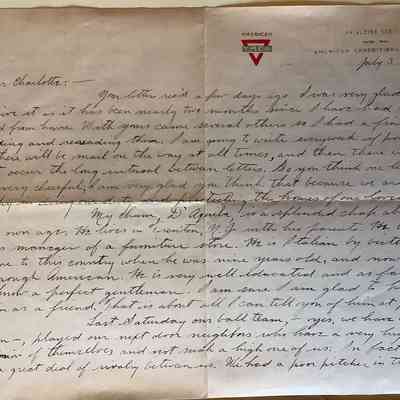 AMERICAN
Y.M.C.A
ON ACTIVE SERVICE
WITH THE
AMERICAN EXPEDITIONA
July 3
ar Charlotte: —
Your letter rec'd a few days ago. I was very glad
at it as it has been nearly two months since I have had
d from home. With yours came several others so I had a fine
ding and rereading them. I am going to write
there will be mail on the way at all times, and then there w
t occur the long interval between letters. So you think
very cheerful, I am very glad you think that because we are
the homes of our loved
My chum, D'Aquila, is a splendid chap ab
own age. He lives in Trenton, N.J. with his parents. He
s manager of a furniture store. He is Italian by birth
me to this country when he was nine years old, and now
rough American. He is very well educated and as far
know a perfect gentleman. I am sure I am glad to h
m as a friend. That is about all I can tell you of him at
Last Saturday our ball team, — oyes, we have
m —, played our next door neighbors who have a very hi
of themselves and not such a high one of us. In fact
a great deal of rivalry between us. We had a poor pitcher in t